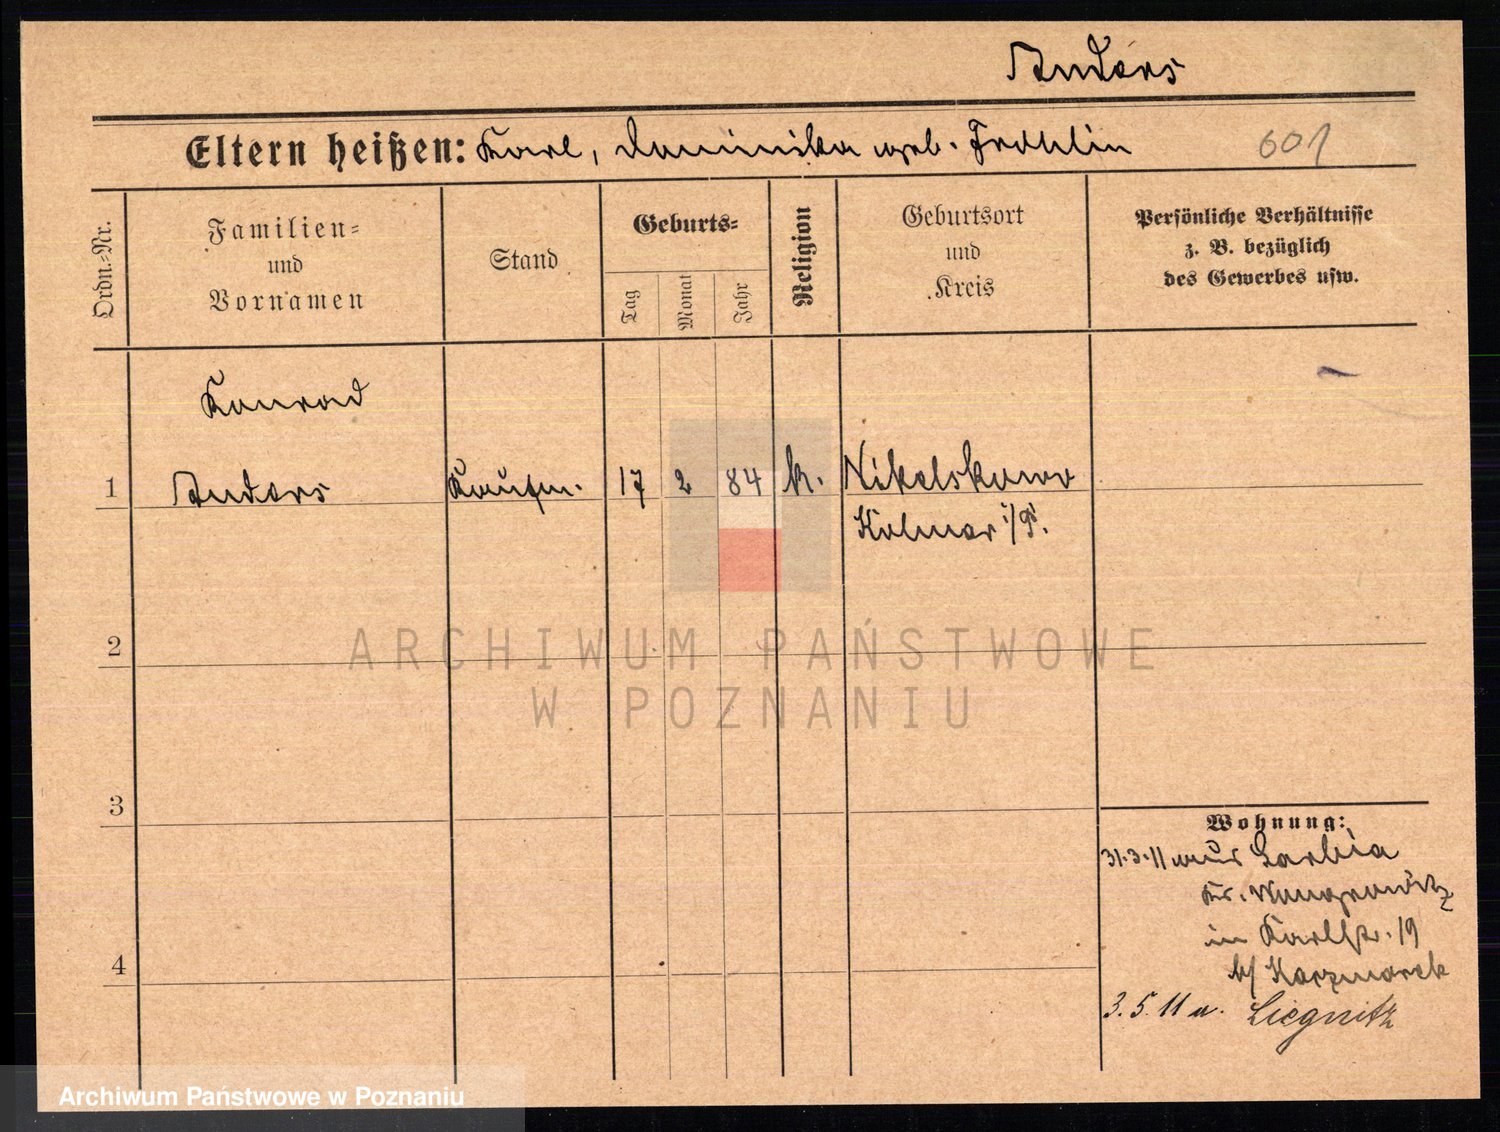 Anders
Eltern heißen: Karl, Dominika geb. Fröhlin
601
Ordn.-Nr.
Familien-
und
Vornamen
Stand
Geburts-
Tag
Monat
Jahr
Religion
Geburtsort
und
Kreis
Persönliche Verhältnisse
z. B. bezüglich
des Gewerbes usw.
Konrad
1 Anders Kaufm. 17 2 84 k. Nikolskowo
Kolmar i/P.
2
3
4
Wohnung:
31.3.11 aus Sarbia
Kr. Wongrowitz
in Karlstr. 19
b/ Kaczmarek
3.5.11 n. Liegnitz
ARCHIWUM PAŃSTWOWE
W POZNANIU
Archiwum Państwowe w Poznaniu